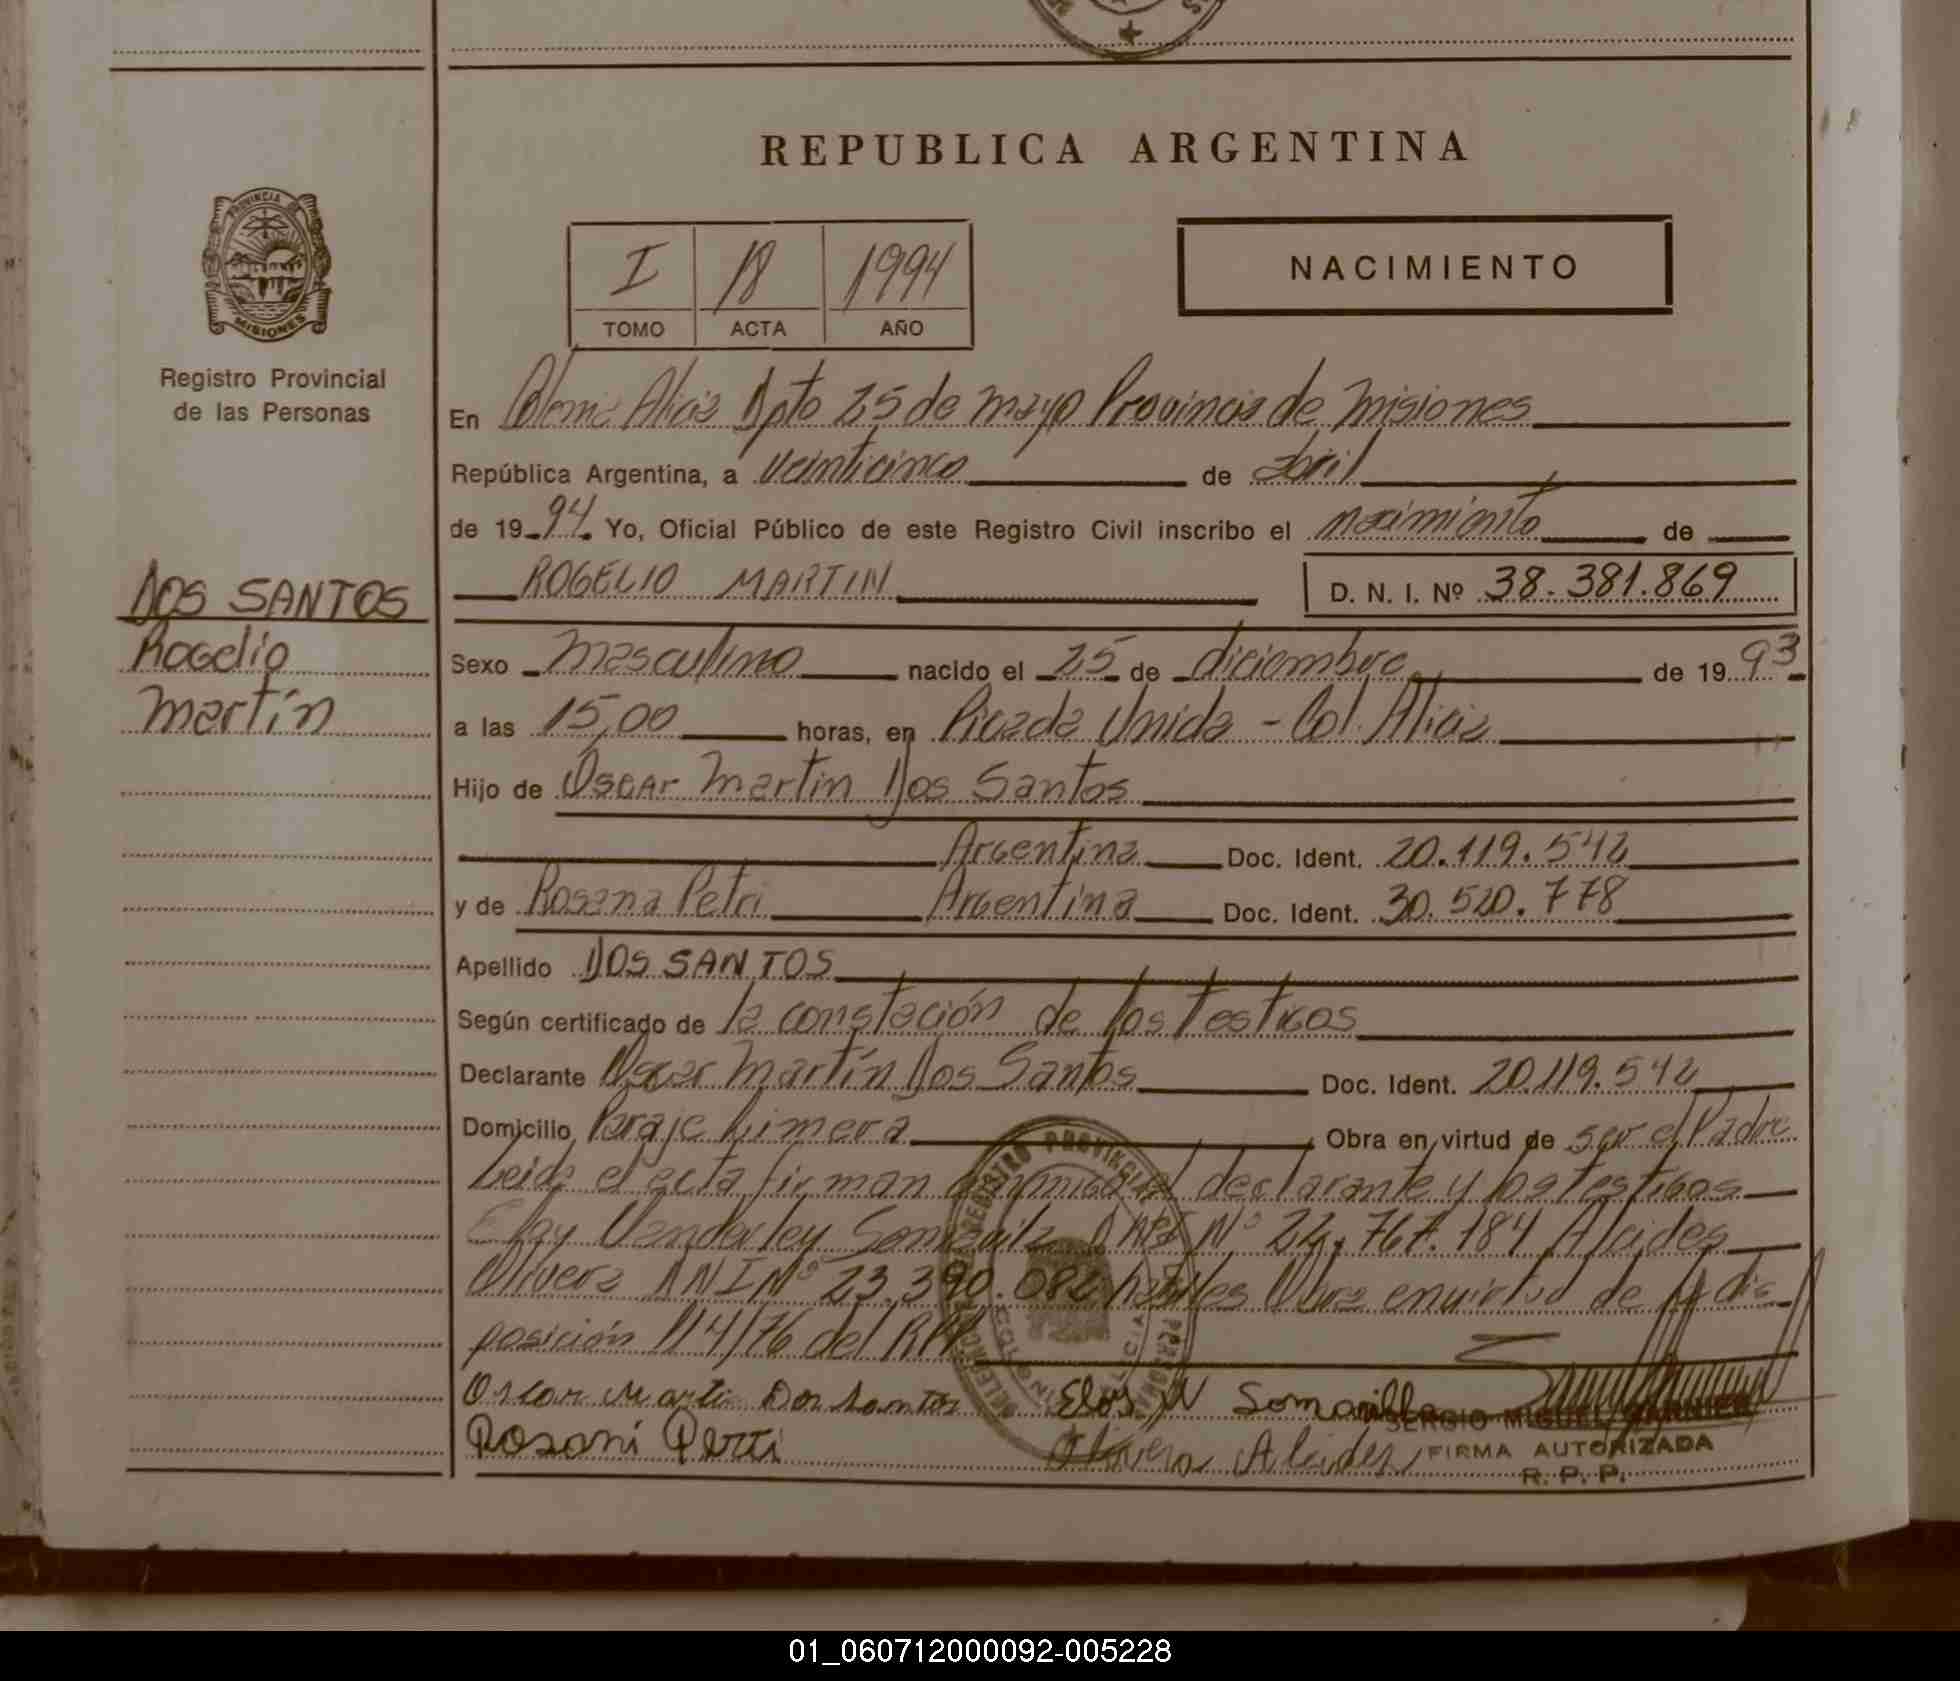 REPUBLICA ARGENTINA
PROVINCIA DE
MISIONES
Registro Provincial
de las Personas
I 18 1994
TOMO ACTA AÑO
NACIMIENTO
En Colonia Alicia Dpto 25 de mayo Provincia de Misiones
República Argentina, a veinticinco de abril
de 1994. Yo, Oficial Público de este Registro Civil inscribo el nacimiento de
ROGELIO MARTIN D. N. I. Nº 38.381.869
DOS SANTOS
Rogelio
Martín
Sexo masculino nacido el 25 de diciembre de 1993
a las 15,00 horas, en Picada Unida - Col. Alicia
Hijo de Oscar Martin Dos Santos
Argentina Doc. Ident. 20.119.542
y de Rosana Petri Argentina Doc. Ident. 30.520.778
Apellido DOS SANTOS
Según certificado de la constación de los testigos
Declarante Oscar Martín Dos Santos Doc. Ident. 20.119.542
Domicilio Paraje Limera Obra en virtud de ser el Padre
Leida el acta firman conmigo el declarante y los testigos
Eloy Vanderley DNI Nº 22.767.184 Alcides
Olivera DNI Nº 23.390.082 habiles Obra en virtud de la dis
posición 114/76 del RPP
Oscar Martin Dos Santos Eloy W
Rosani Petri Olivera Alcides
SERGIO MIGUEL GARNIER
FIRMA AUTORIZADA
R. P. P.
01_060712000092-005228